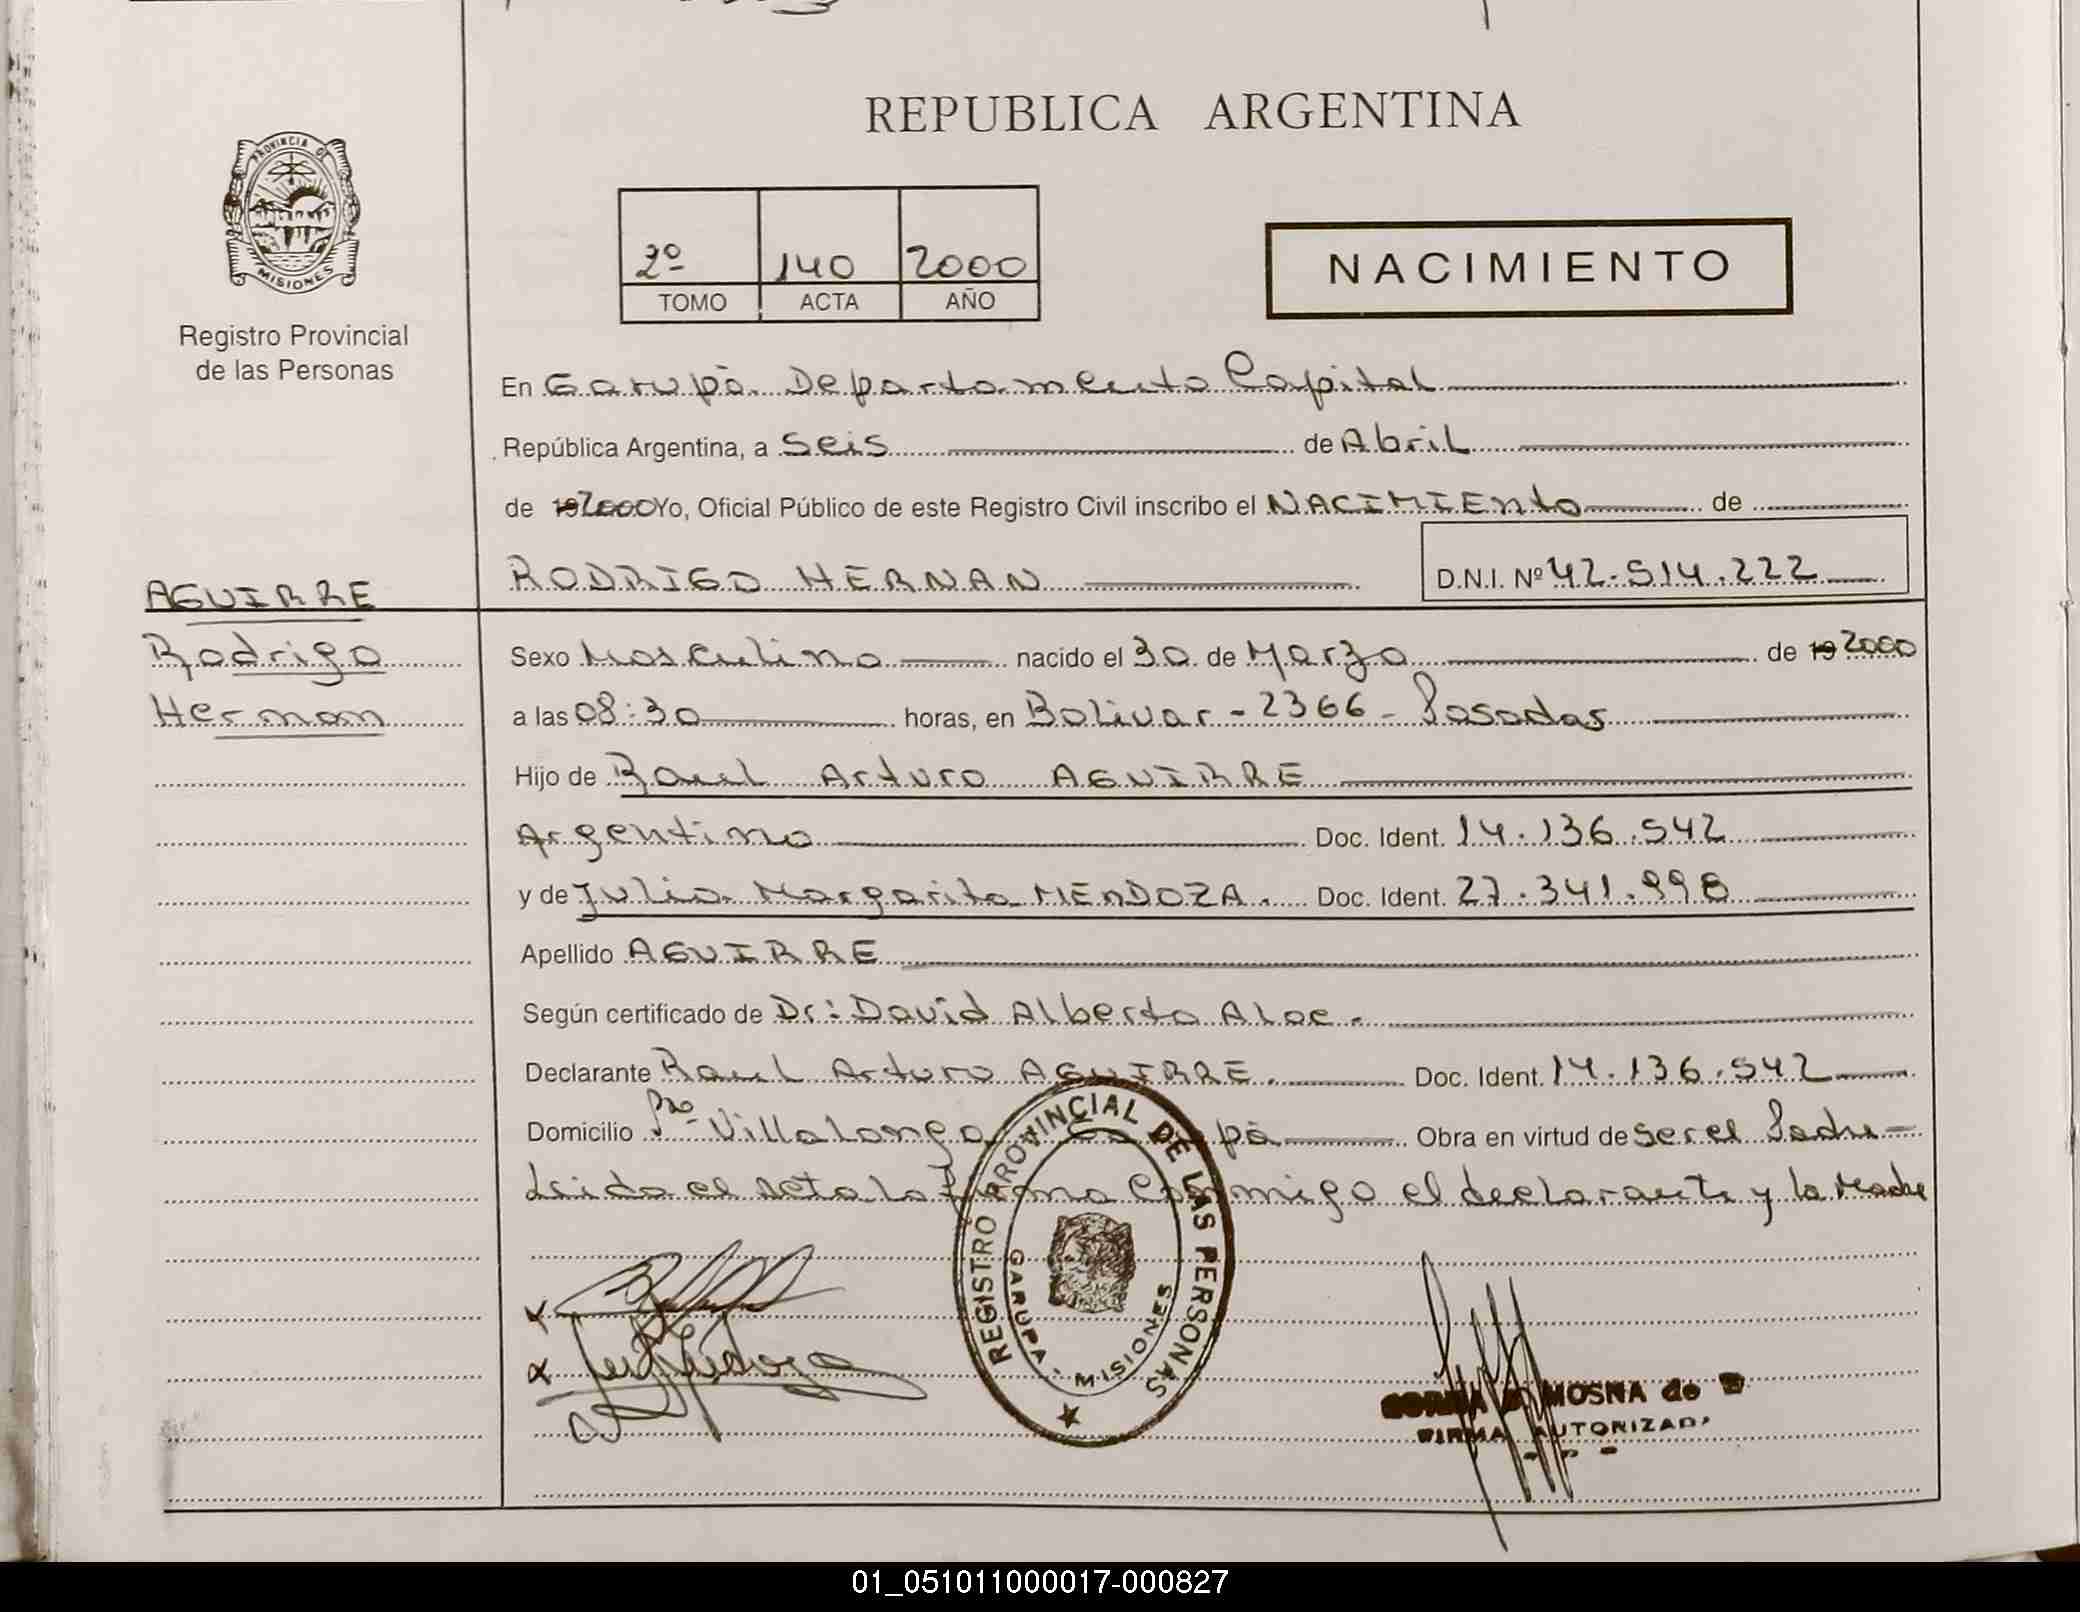 REPUBLICA ARGENTINA
PROVINCIA DE
MISIONES
Registro Provincial
de las Personas
2º 140 2000
TOMO ACTA AÑO
NACIMIENTO
En Garupá. Departamento Capital
República Argentina, a Seis de Abril
de 192000 Yo, Oficial Público de este Registro Civil inscribo el NACIMIENTO de
RODRIGO HERNAN D.N.I. Nº 42.514.222
AGUIRRE
Rodrigo
Hernan
Sexo Masculino nacido el 30 de Marzo de 19 2000
a las 08:30 horas, en Bolivar - 2366 - Posadas
Hijo de Raul Arturo AGUIRRE
Argentino Doc. Ident. 14.136.542
y de Julia Margarita MENDOZA. Doc. Ident. 27.341.998
Apellido AGUIRRE
Según certificado de Dr: David Alberto Aloe.
Declarante Raul Arturo AGUIRRE. Doc. Ident. 14.136.542
Domicilio Bº Villalonga Obra en virtud de ser el Padre
Leida el acta la firma conmigo el declarante y la Madre
REGISTRO PROVINCIAL DE LAS PERSONAS
GARUPA - MISIONES
MOSNA de
FIRMA AUTORIZADA
01_051011000017-000827